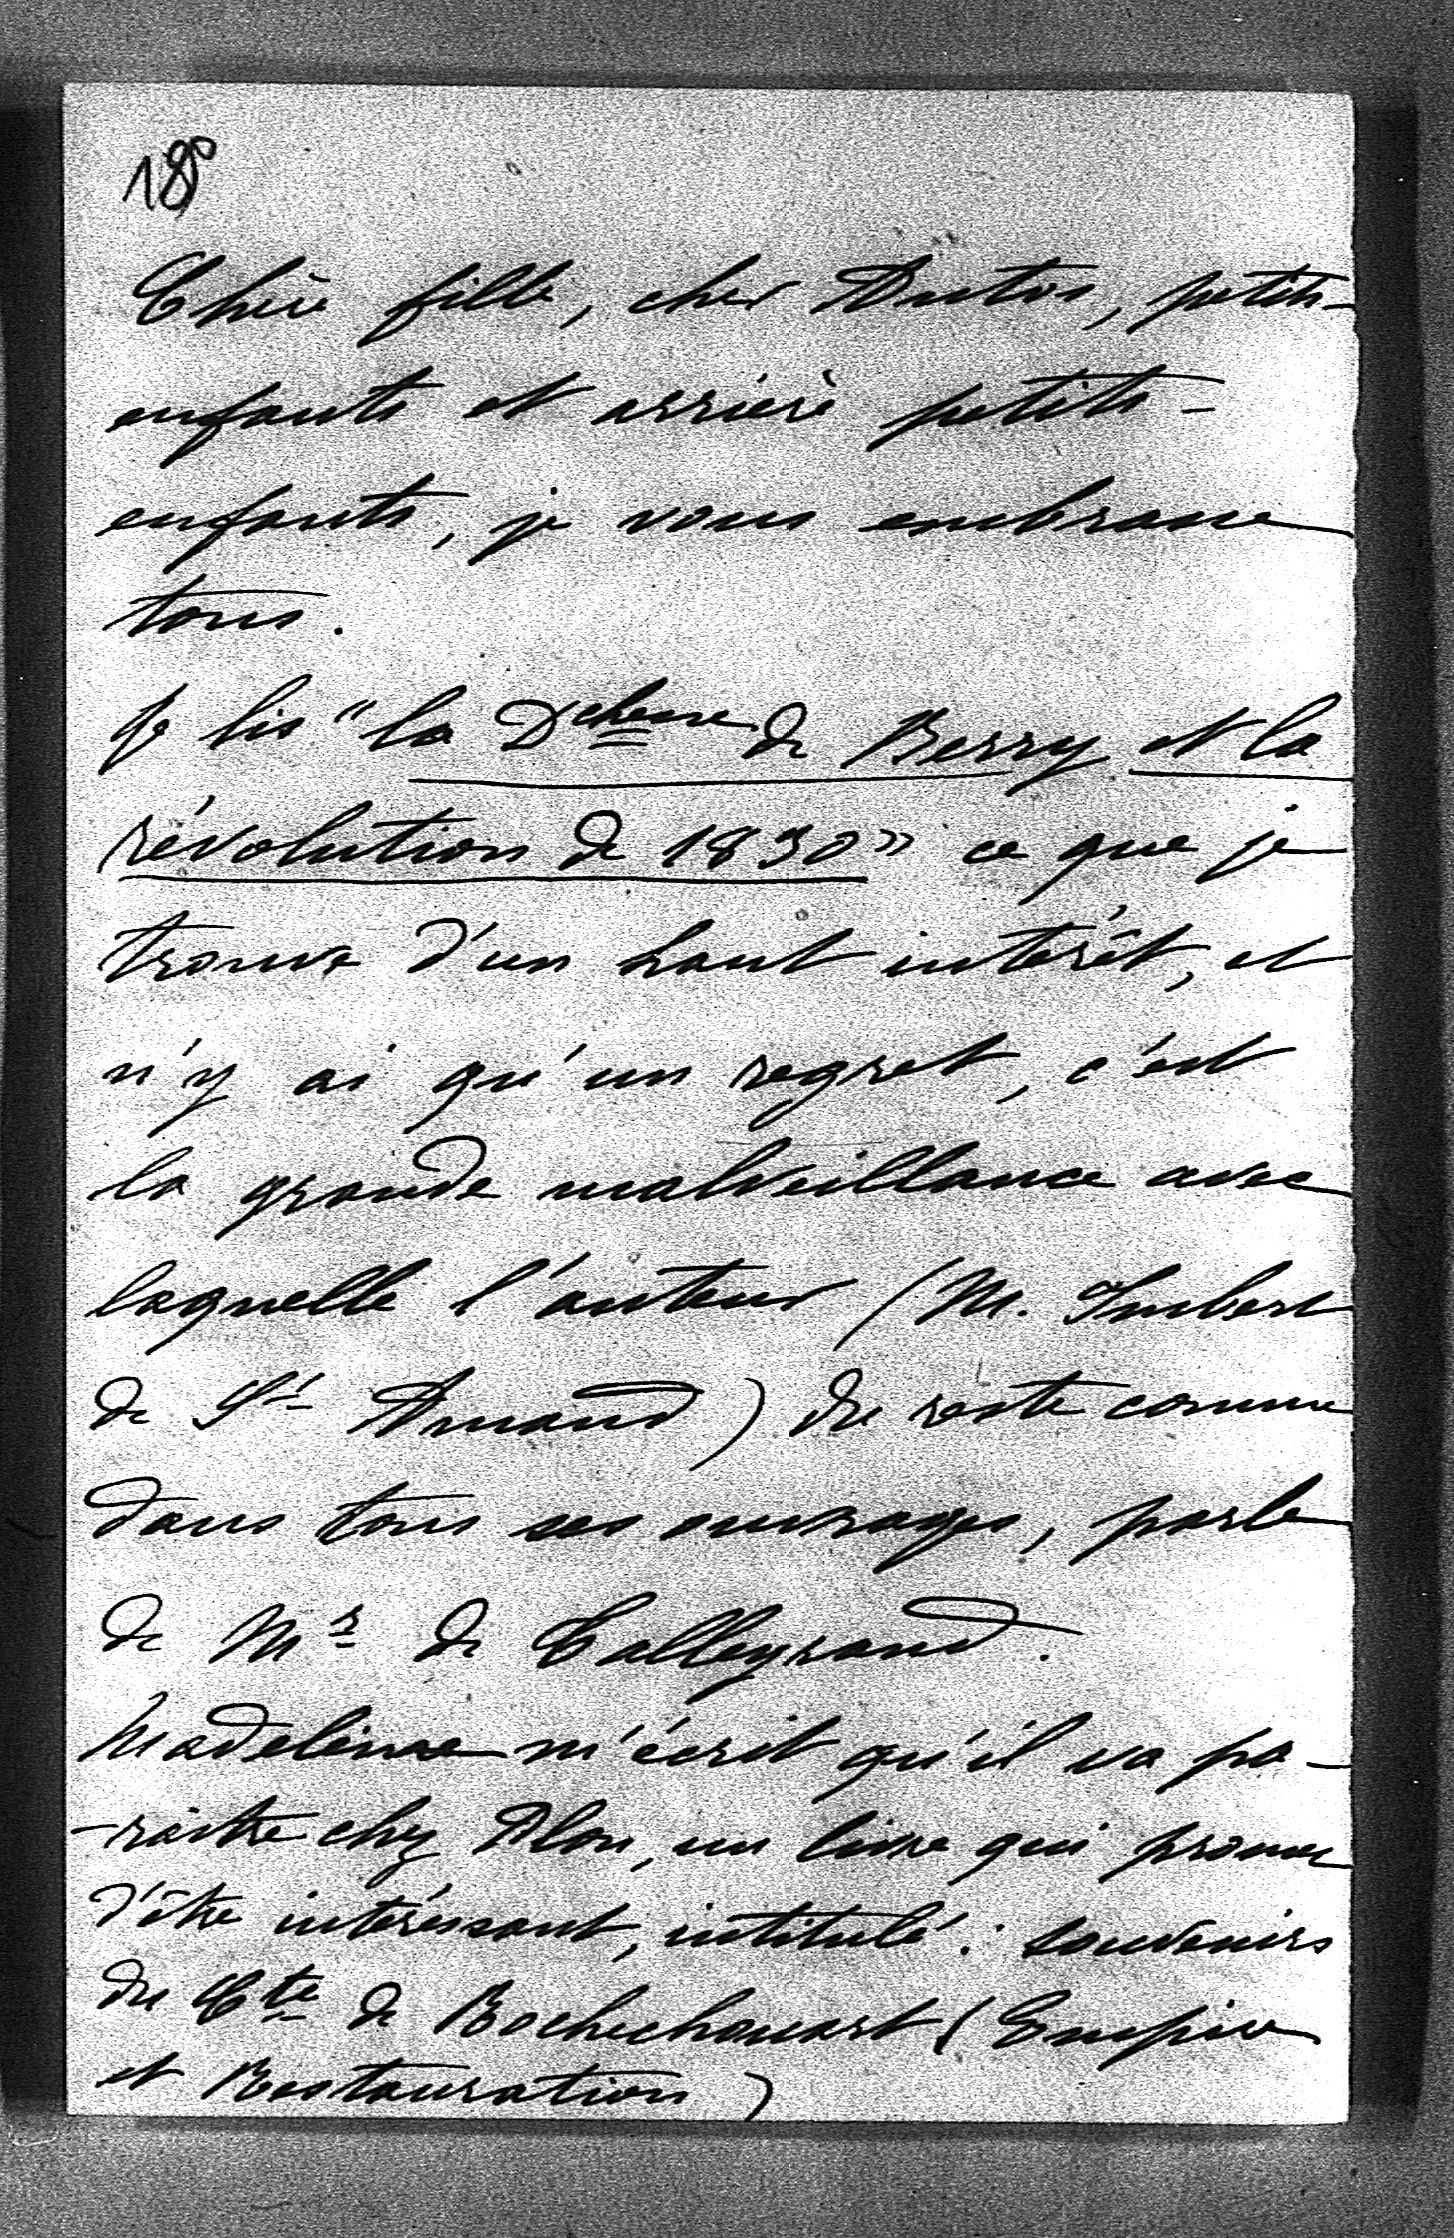 18°
Chère fille, cher Anton, petits-
enfants et arrière petits-
enfants, je vous embrasse
tous.
Je lis "la Dchesse de Berry et la
révolution de 1830" ce que je
trouve d'un haut intérêt, et
n'y ai qu'un regret, c'est
la grande malveillance avec
laquelle l'auteur (M. Imbert
de St Amand) du reste comme
dans tous ses ouvrages, parle
de Mr de Talleyrand.
Madeleine m'écrit qu'il va pa-
-raître chez Plon, un livre qui promet
d'être intéressant, intitulé: souvenirs
du Cte de Rochechouart (Empire
et Restauration)